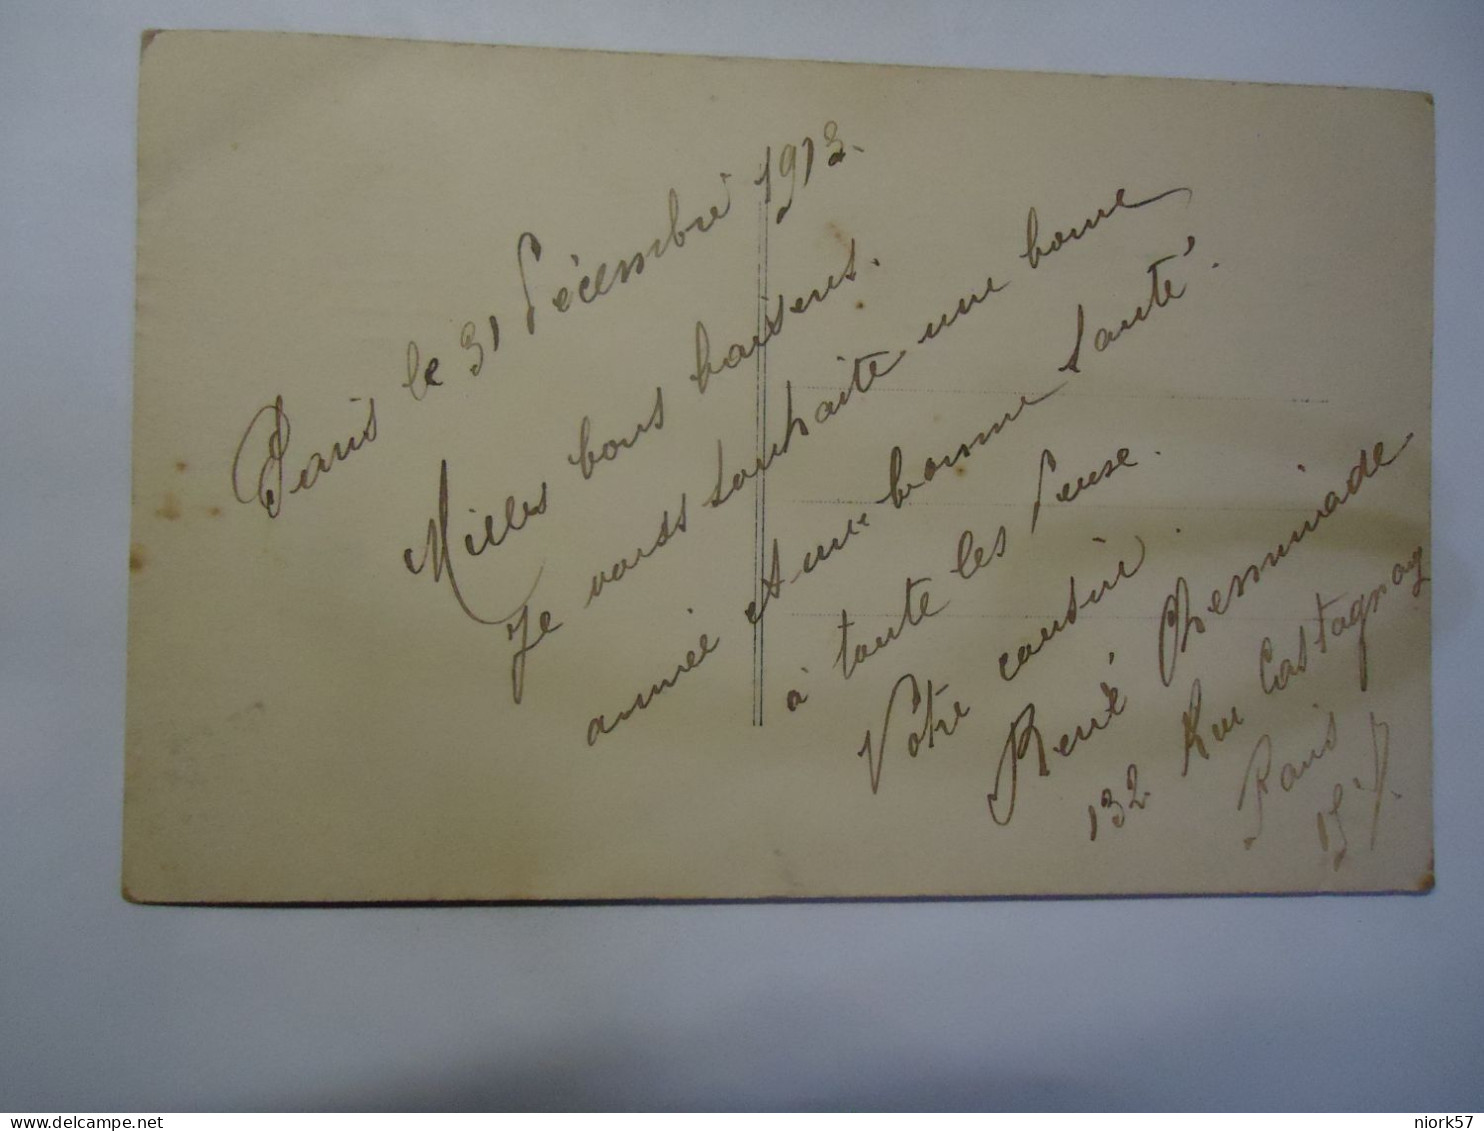 Paris le 31 Décembre 1913.
Milles bons baisers.
Je vous souhaite une bonne
année et une bonne santé.
à toute les deuse.
Votre cousin.
René Cheminade
132 Rue Castagnary
Paris
15
niork57